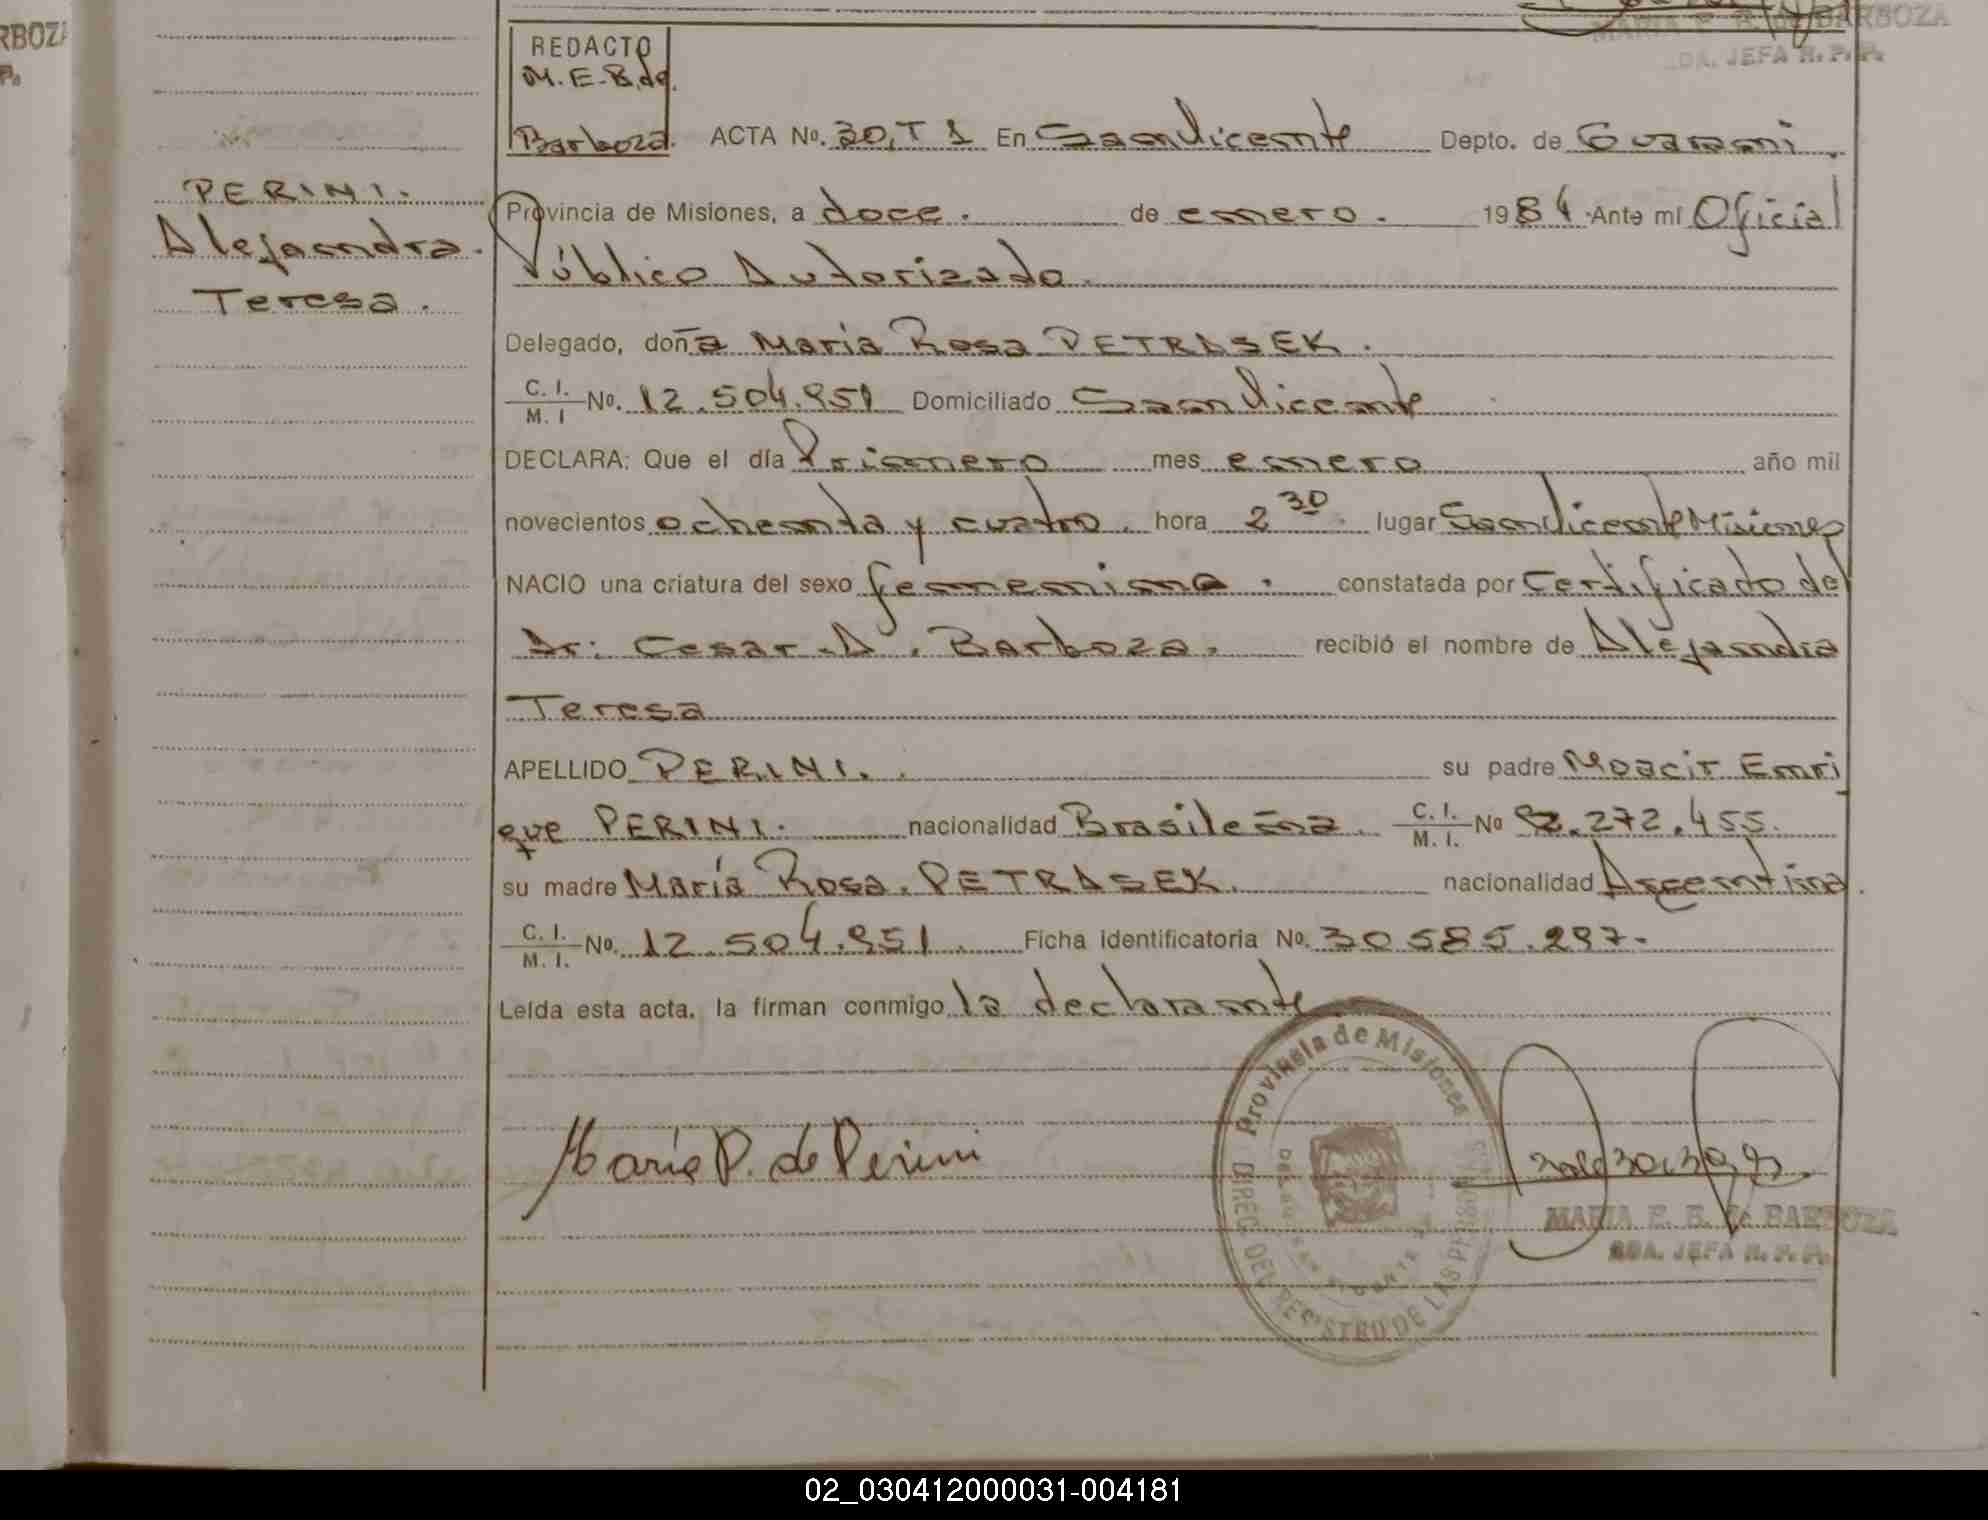 RBOZA
P.
MARIA E. B. de BARBOZA
DA. JEFA R. P. P.
REDACTO
M. E. B. de
Barboza. ACTA No. 30, T 1 En San Vicente Depto. de Guarani.
PERINI.
Alejandra
Teresa.
Provincia de Misiones, a doce. de enero. 1984 Ante mí Oficial
Público Autorizado.
Delegado, doña Maria Rosa PETRASEK.
C. I. / M. I No. 12.504.951 Domiciliado San Vicente
DECLARA: Que el día Primero mes enero año mil
novecientos ochenta y cuatro. hora 2 30 lugar San Vicente Misiones
NACIO una criatura del sexo femenino. constatada por Certificado del
Dr: Cesar A. Barboza. recibió el nombre de Alejandra
Teresa
APELLIDO PERINI. su padre Moacir Enri
que PERINI. nacionalidad Brasileña. C. I. / M. I. No 92.272.455.
su madre María Rosa. PETRASEK. nacionalidad Argentina.
C. I. / M. I. No. 12.504.951. Ficha identificatoria No. 30 585.297.
Leída esta acta, la firman conmigo la declarante
Provincia de Misiones
DIREC. DEL REGISTRO DE LAS PERSONAS
María P. de Perini
MARIA E. B. de BARBOZA
SDA. JEFA R. P. P.
02_030412000031-004181